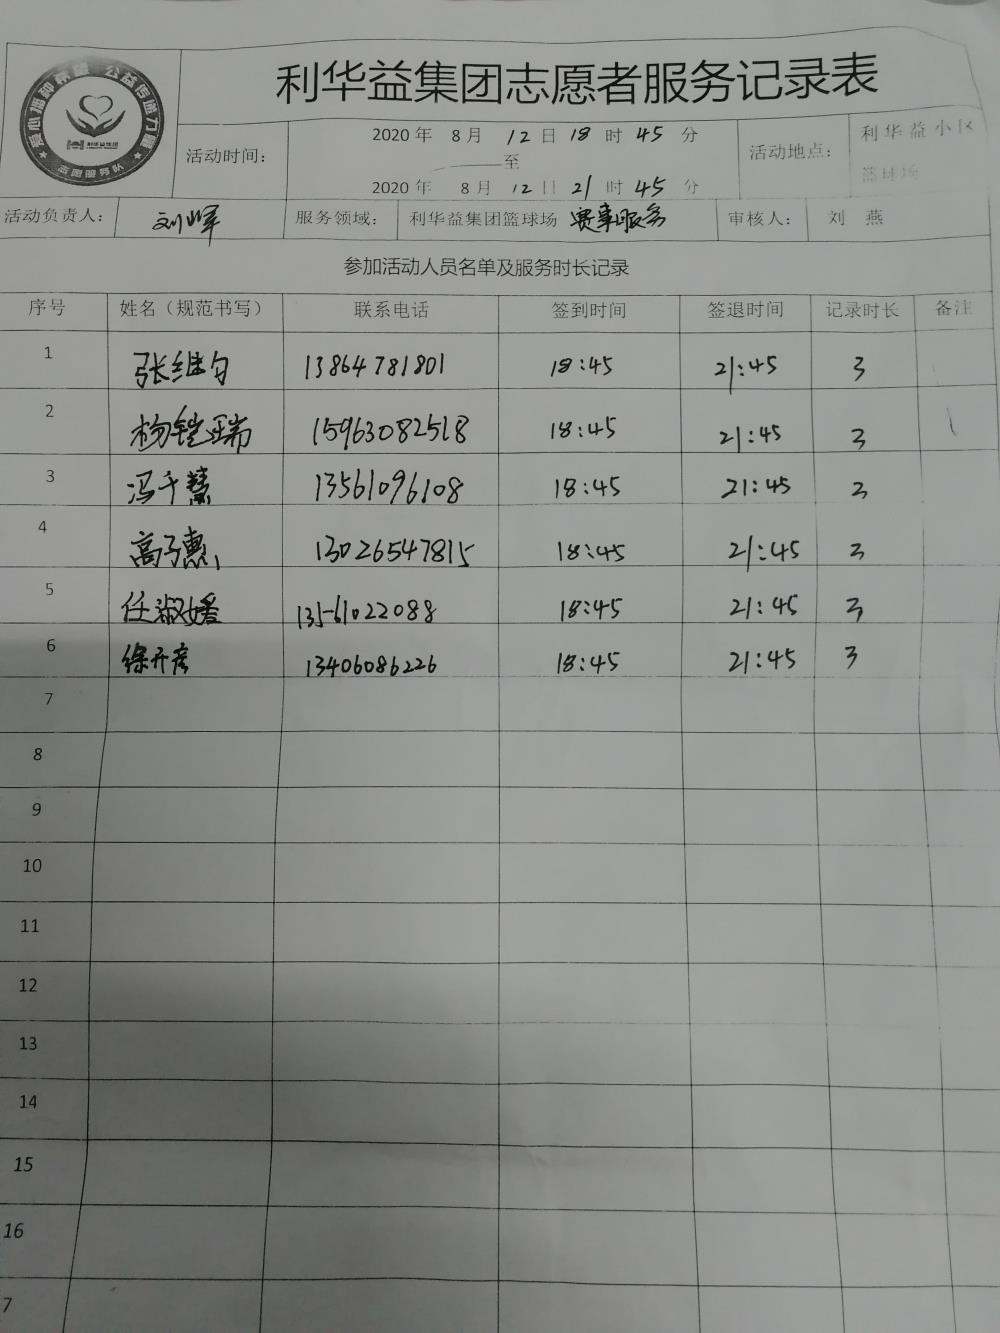 爱心播种希望 公益传递力量
利华益集团
志愿服务队
利华益集团志愿者服务记录表
活动时间： 2020年 8月 12日 18时 45分
至
2020年 8月 12日 21时 45分
活动地点： 利华益小区
篮球场
活动负责人： 刘峰 服务领域： 利华益集团篮球场 赛事服务 审核人： 刘 燕
参加活动人员名单及服务时长记录
序号 姓名（规范书写） 联系电话 签到时间 签退时间 记录时长 备注
1 张继匀 13864781801 18:45 21:45 3
2 杨铠瑞 15963082518 18:45 21:45 3
3 冯千慧 13561096108 18:45 21:45 3
4 高子惠 13026547815 18:45 21:45 3
5 任淑媛 13561022088 18:45 21:45 3
6 徐开彦 13406086226 18:45 21:45 3
7
8
9
10
11
12
13
14
15
16
7